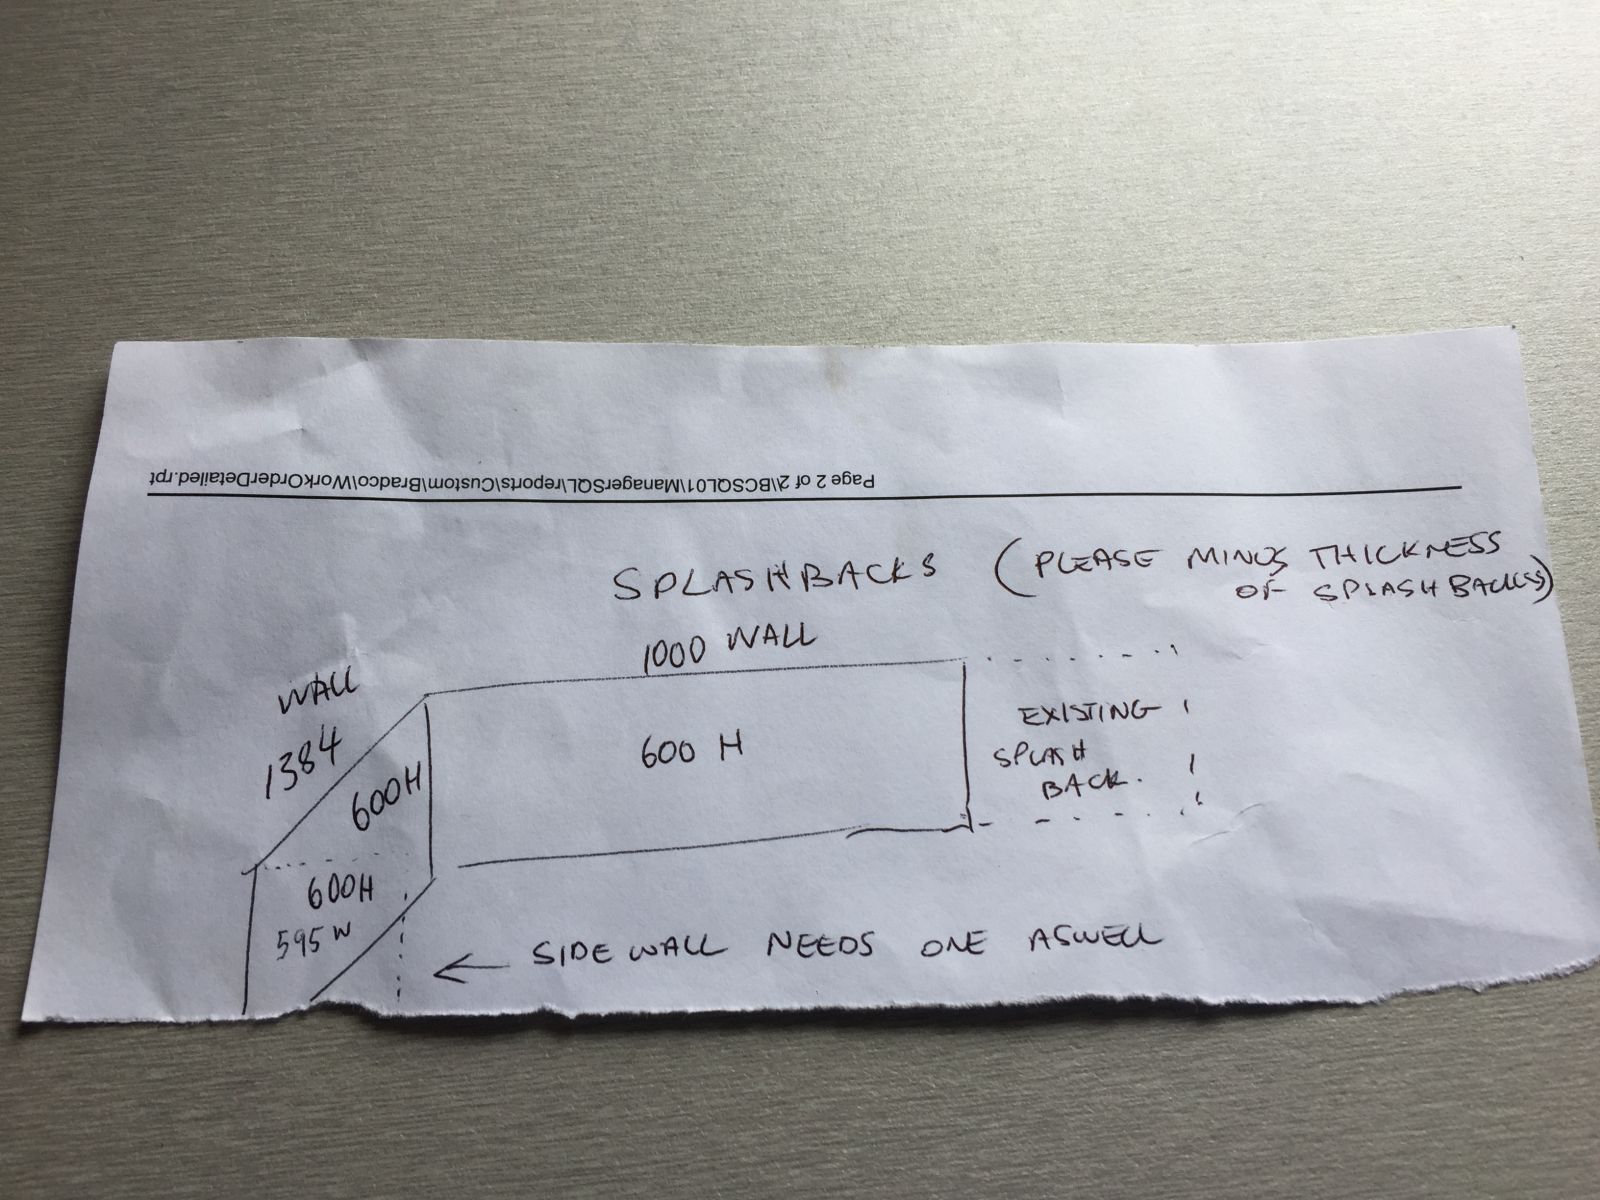 Page 2 of 2\\BCSQL01\ManagerSQL\reports\Custom\Bradco\WorkOrderDetailed.rpt
SPLASHBACKS (PLEASE MINUS THICKNESS
OF SPLASHBACKS)
1000 WALL
WALL
1384
600H
600 H
EXISTING
SPLASH
BACK.
600H
595 W
← SIDE WALL NEEDS ONE ASWELL